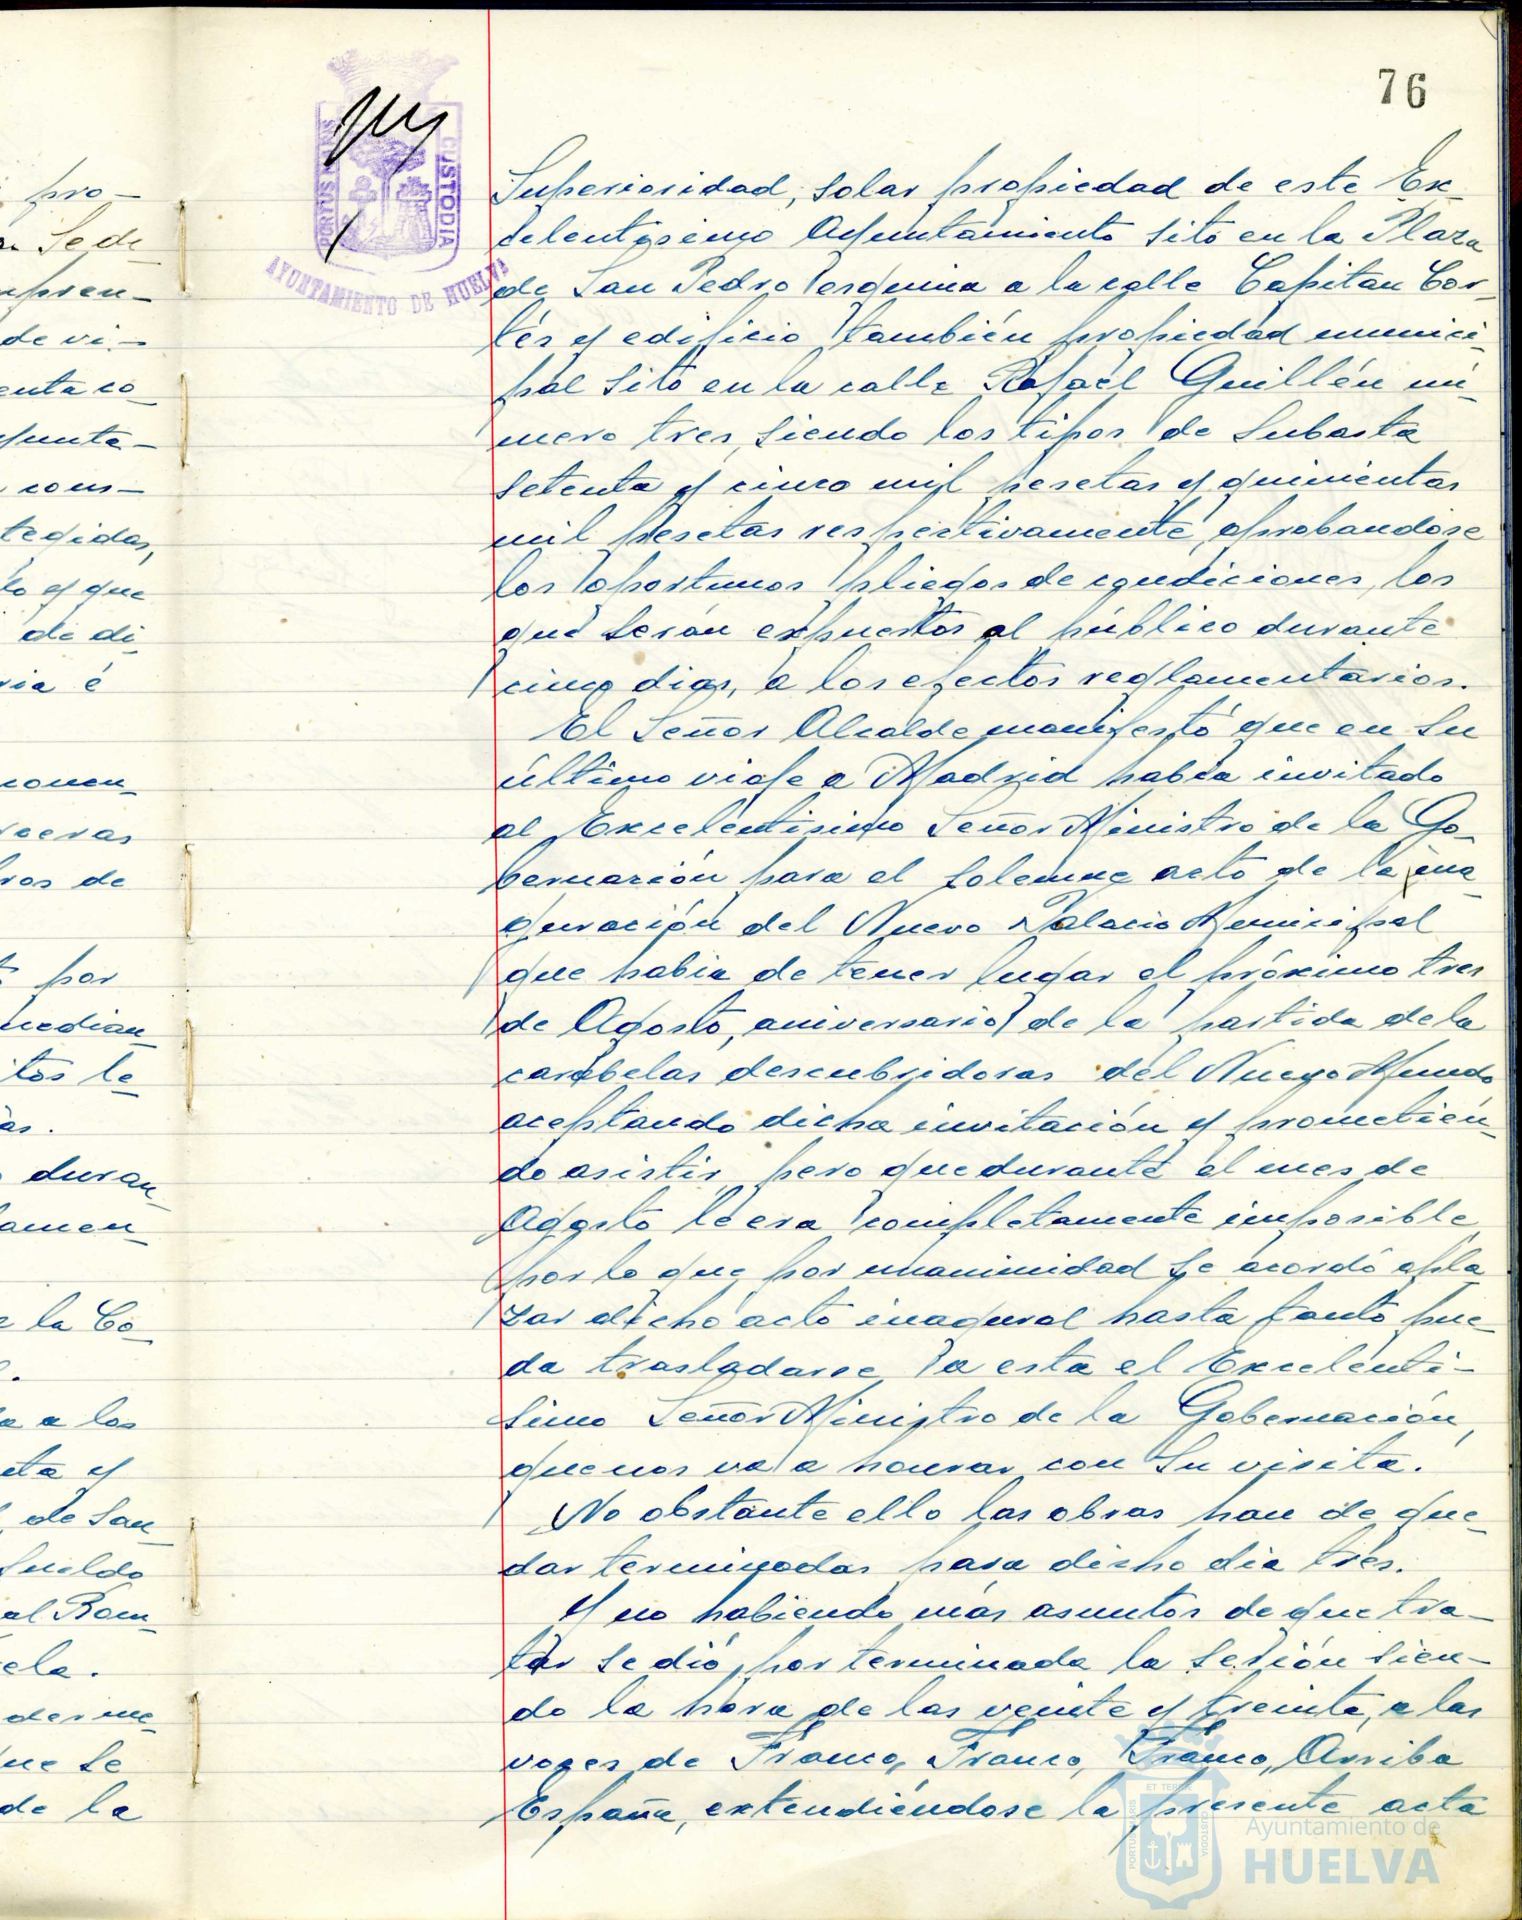 76
PORTUS MARIS
CUSTODIA
AYUNTAMIENTO DE HUELVA
pro-
Se de
pren-
de vi-
enta co-
yunta-
cons-
tegidas,
to y que
de di-
ria é
ponen-
ros de
por
median-
itos le-
as.
duran-
lamen-
la Co-
a a los
eta y
de San-
Sueldo
al Rom-
ela.
que se
de la
Superioridad, solar propiedad de este Ex-
celentisimo Ayuntamiento sito en la Plaza
de San Pedro esquina a la calle Capitan Cor-
tés y edificio también propiedad munici-
pal sito en la calle Rafael Guillén nú-
mero tres, siendo los tipos de Subasta
setenta y cinco mil pesetas y quinientas
mil pesetas respectivamente, aprobandose
los oportunos pliegos de condiciones, los
que serán expuestos al público durante
cinco dias, a los efectos reglamentarios.
El Señor Alcalde manifestó que en su
último viaje a Madrid habia invitado
al Excelentisimo Señor Ministro de la Go-
bernación para el solemne acto de la ina-
guración del Nuevo Palacio Municipal
que habia de tener lugar el próximo tres
de Agosto, aniversario de la partida de la
carabelas descubridoras del Nuevo Mundo
aceptando dicha invitación y prometien-
do asistir, pero que durante el mes de
Agosto le era completamente imposible,
por lo que, por unanimidad se acordó apla
zar dicho acto inagural hasta tanto pue-
da trasladarse a esta el Excelenti-
simo Señor Ministro de la Gobernación,
que nos va a honrar con su visita.
No obstante ello las obras han de que-
dar terminadas para dicho dia tres.
Y no habiendo más asuntos de que tra-
tar se dió por terminada la sesión sien-
do la hora de las veinte y treinta, a las
voces de Franco, Franco, Franco, Arriba
España, extendiéndose la presente acta
ET TERRE
PORTUS MARIS
CUSTODIA
Ayuntamiento de
HUELVA